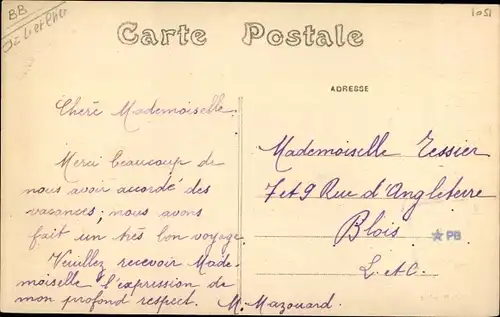 BB
1051
Carte Postale
ADRESSE
Cherè Mademoiselle.
Merci beaucoup de
nous avoir accordé des
vacances; nous avons
fait un très bon voyage
Veuillez recevoir Made-
moiselle l'expression de
mon profond respect. M. Mazouard.
Mademoiselle Tessier
7 et 9 Rue d'Angleterre
Blois
PB
L. et C.